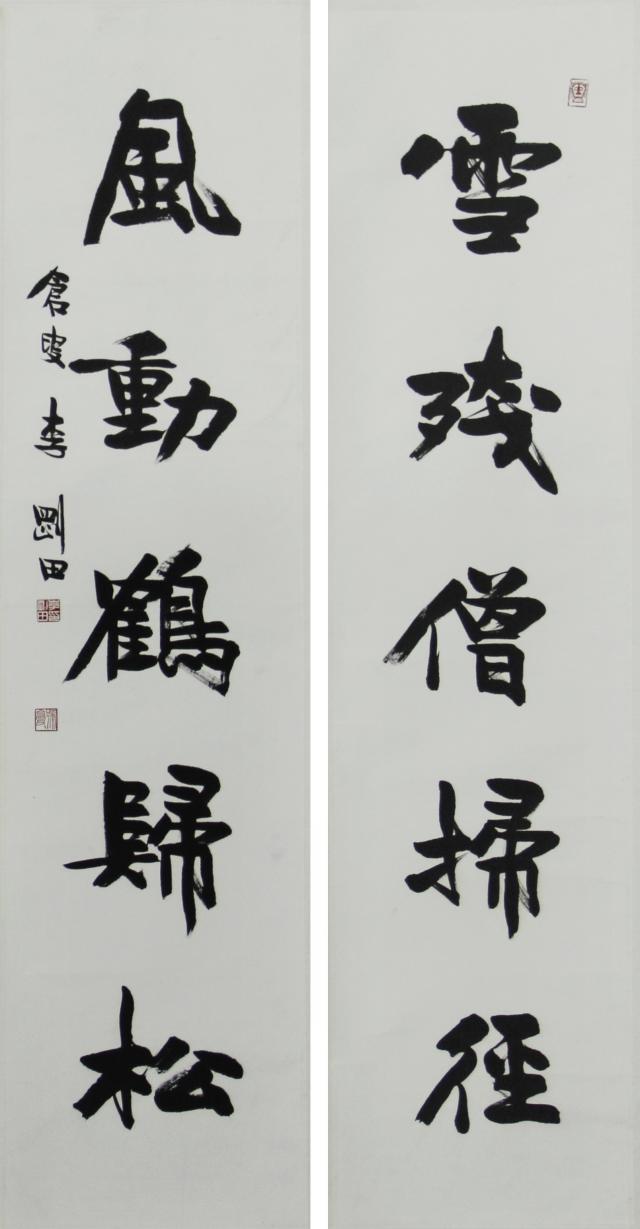 雪殘僧掃徑
風動鶴歸松
倉叟李剛田